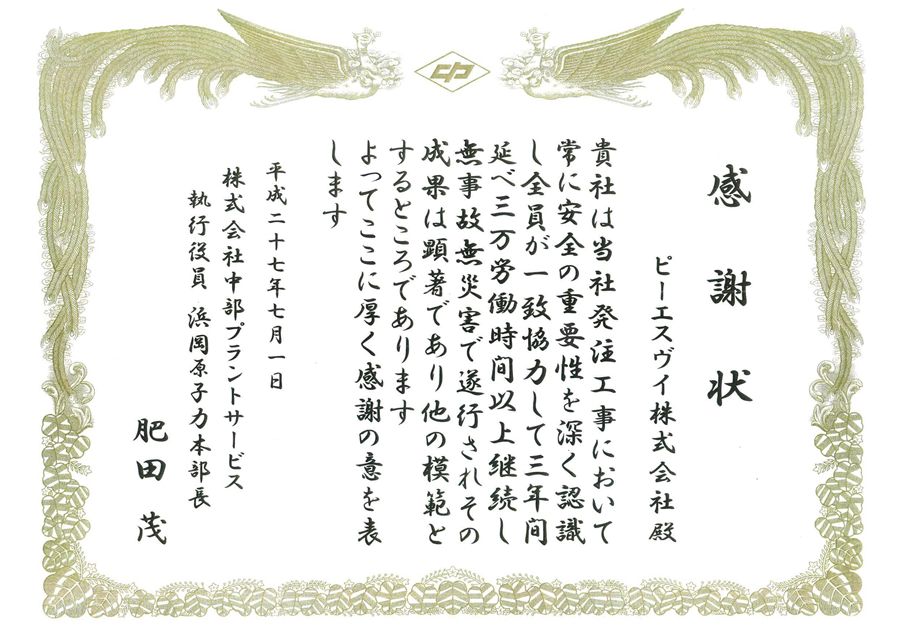 感謝状
ピーエスヴイ株式会社殿
貴社は当社発注工事において
常に安全の重要性を深く認識
し全員が一致協力して三年間
延べ三万労働時間以上継続し
無事故無災害で遂行されその
成果は顕著であり他の模範と
するところであります
よってここに厚く感謝の意を表
します
平成二十七年七月一日
株式会社中部プラントサービス
執行役員 浜岡原子力本部長
肥田 茂